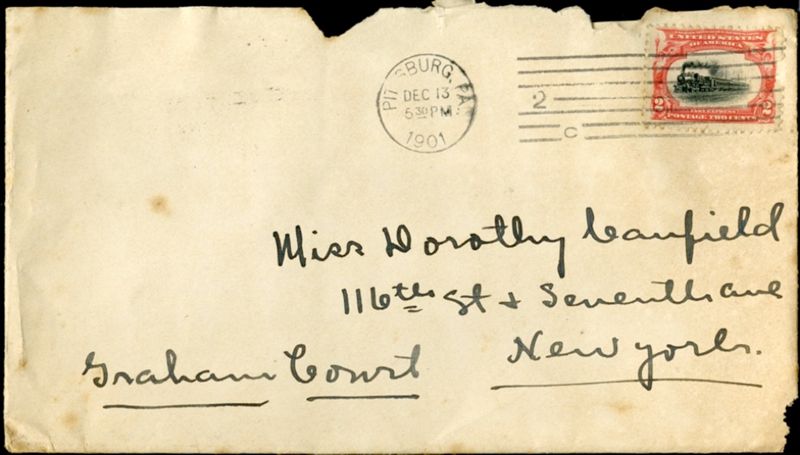 PITTSBURG, PA.
DEC 13
5 30 PM
1901
2
C
UNITED STATES
OF AMERICA
2 2
FAST EXPRESS
POSTAGE TWO CENTS
Miss Dorothy Canfield
116th St + Seventh ave
New York.
Graham Court